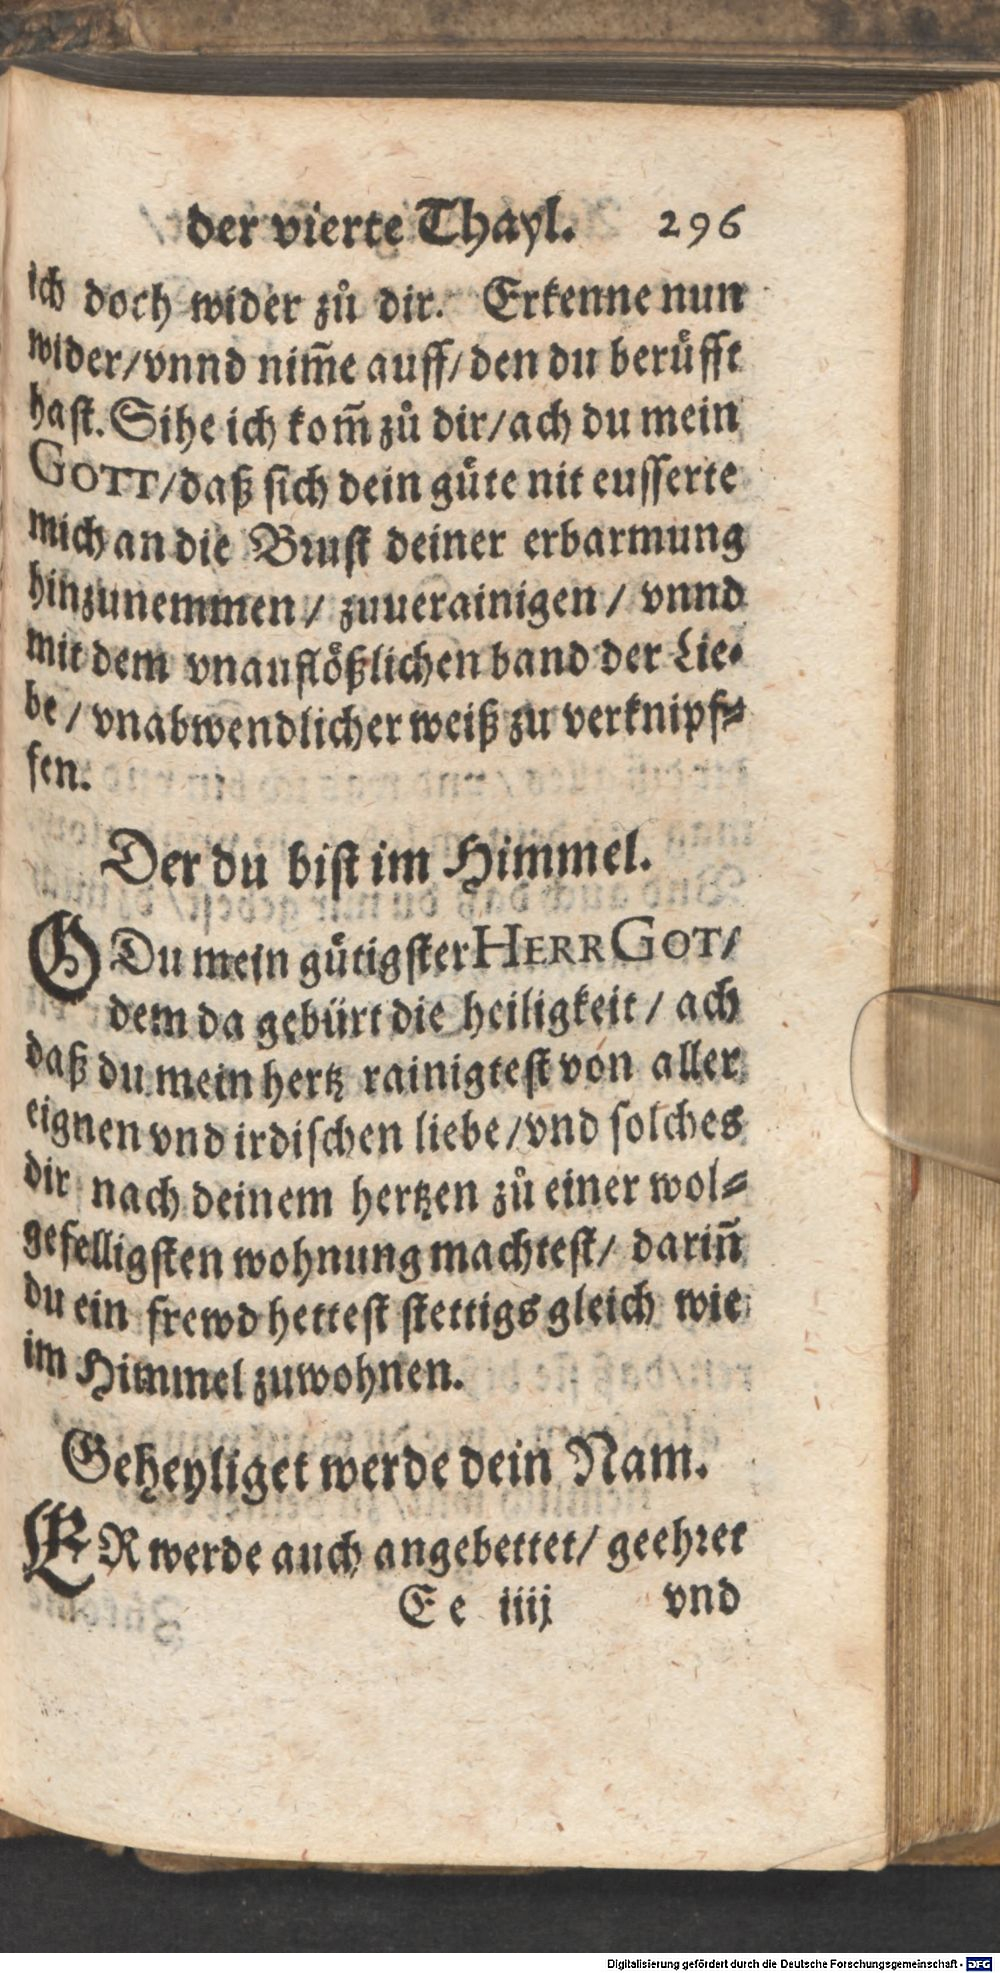 der vierte Thayl. 296
ich doch wider zů dir. Erkenne nun
wider/vnnd nim̃e auff/den du berüfft
hast. Sihe ich kom̃ zů dir/ach du mein
GOTT/daß sich dein gůte nit eusserte
mich an die Brust deiner erbarmung
hinzunemmen/ zuuerainigen/ vnnd
mit dem vnauflößlichen band der Lie-
be/ vnabwendlicher weiß zu verknipf-
fen.
Der du bist im Himmel.
O Du mein gütigster HERR GOT/
dem da gebürt die heiligkeit/ ach
daß du mein hertz rainigtest von aller
eignen vnd irdischen liebe/vnd solches
dir nach deinem hertzen zů einer wol-
gefelligsten wohnung machtest/ dariñ
du ein frewd hettest stettigs gleich wie
im Himmel zuwohnen.
Geheyliget werde dein Nam.
ER werde auch angebettet/ geehret
Ee iiij vnd
Digitalisierung gefördert durch die Deutsche Forschungsgemeinschaft - DFG